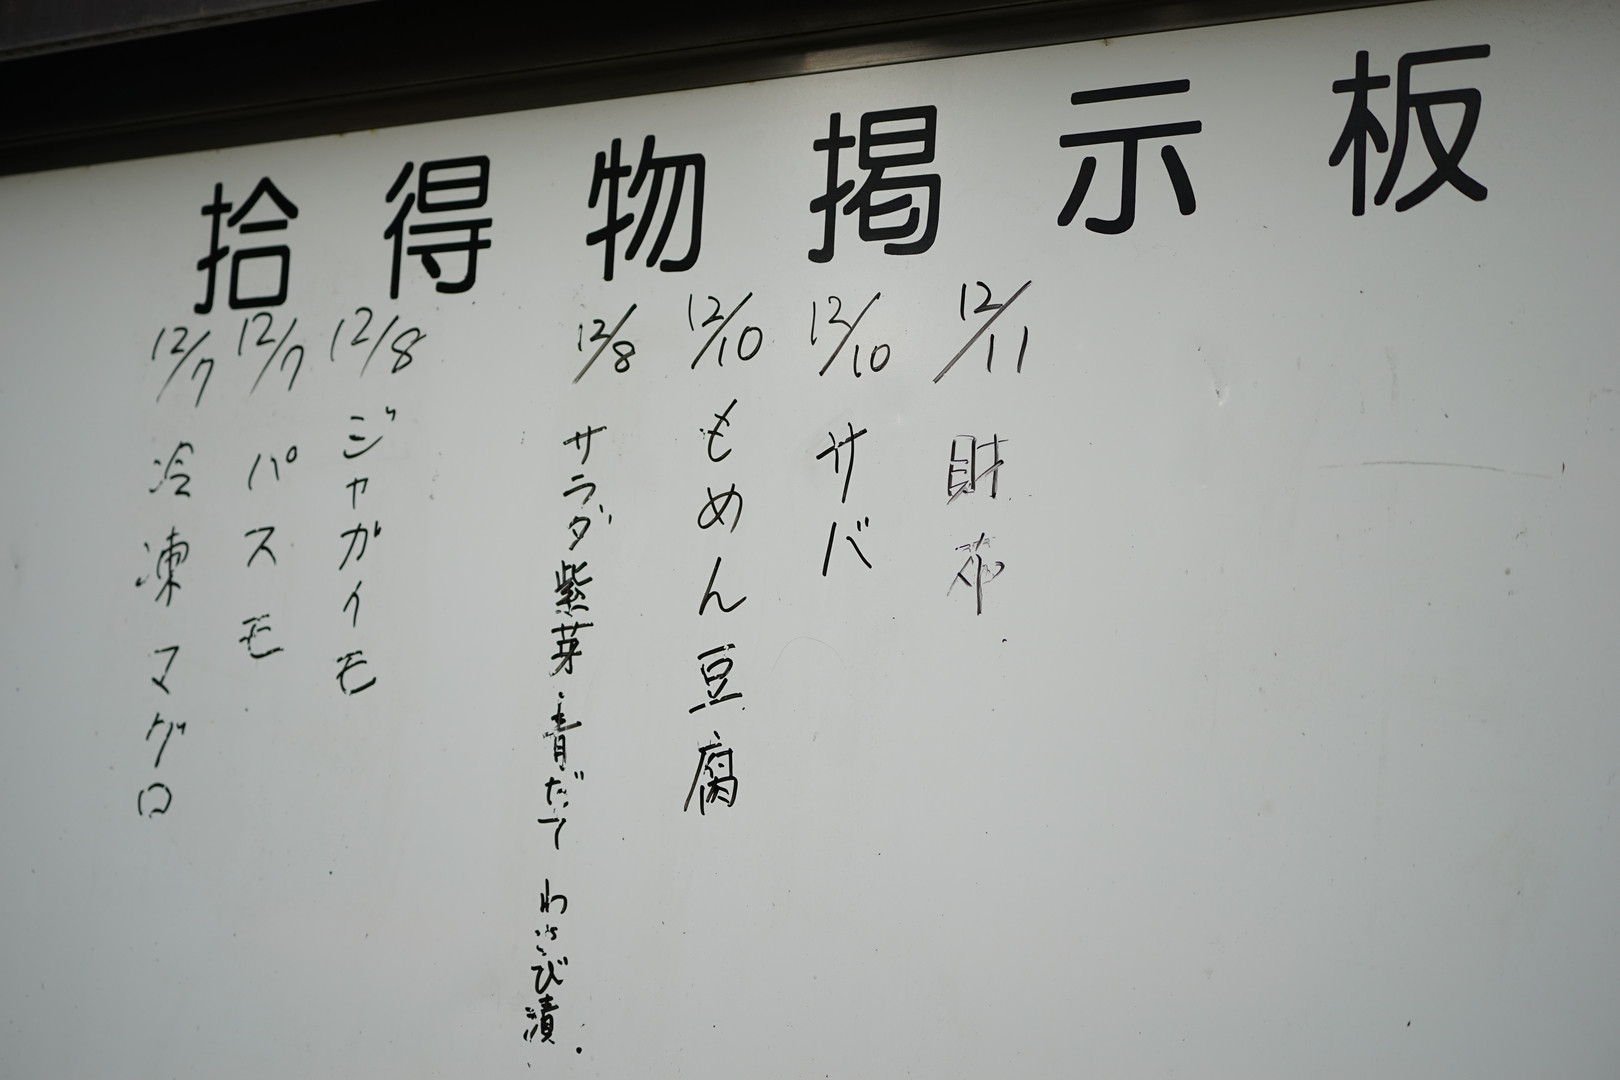 拾得物掲示板
12/7 冷凍マグロ
12/7 パスモ
12/8 ジャガイモ
12/8 サラダ紫芽青だて わらび漬.
12/10 もめん豆腐
12/10 サバ
12/11 財布